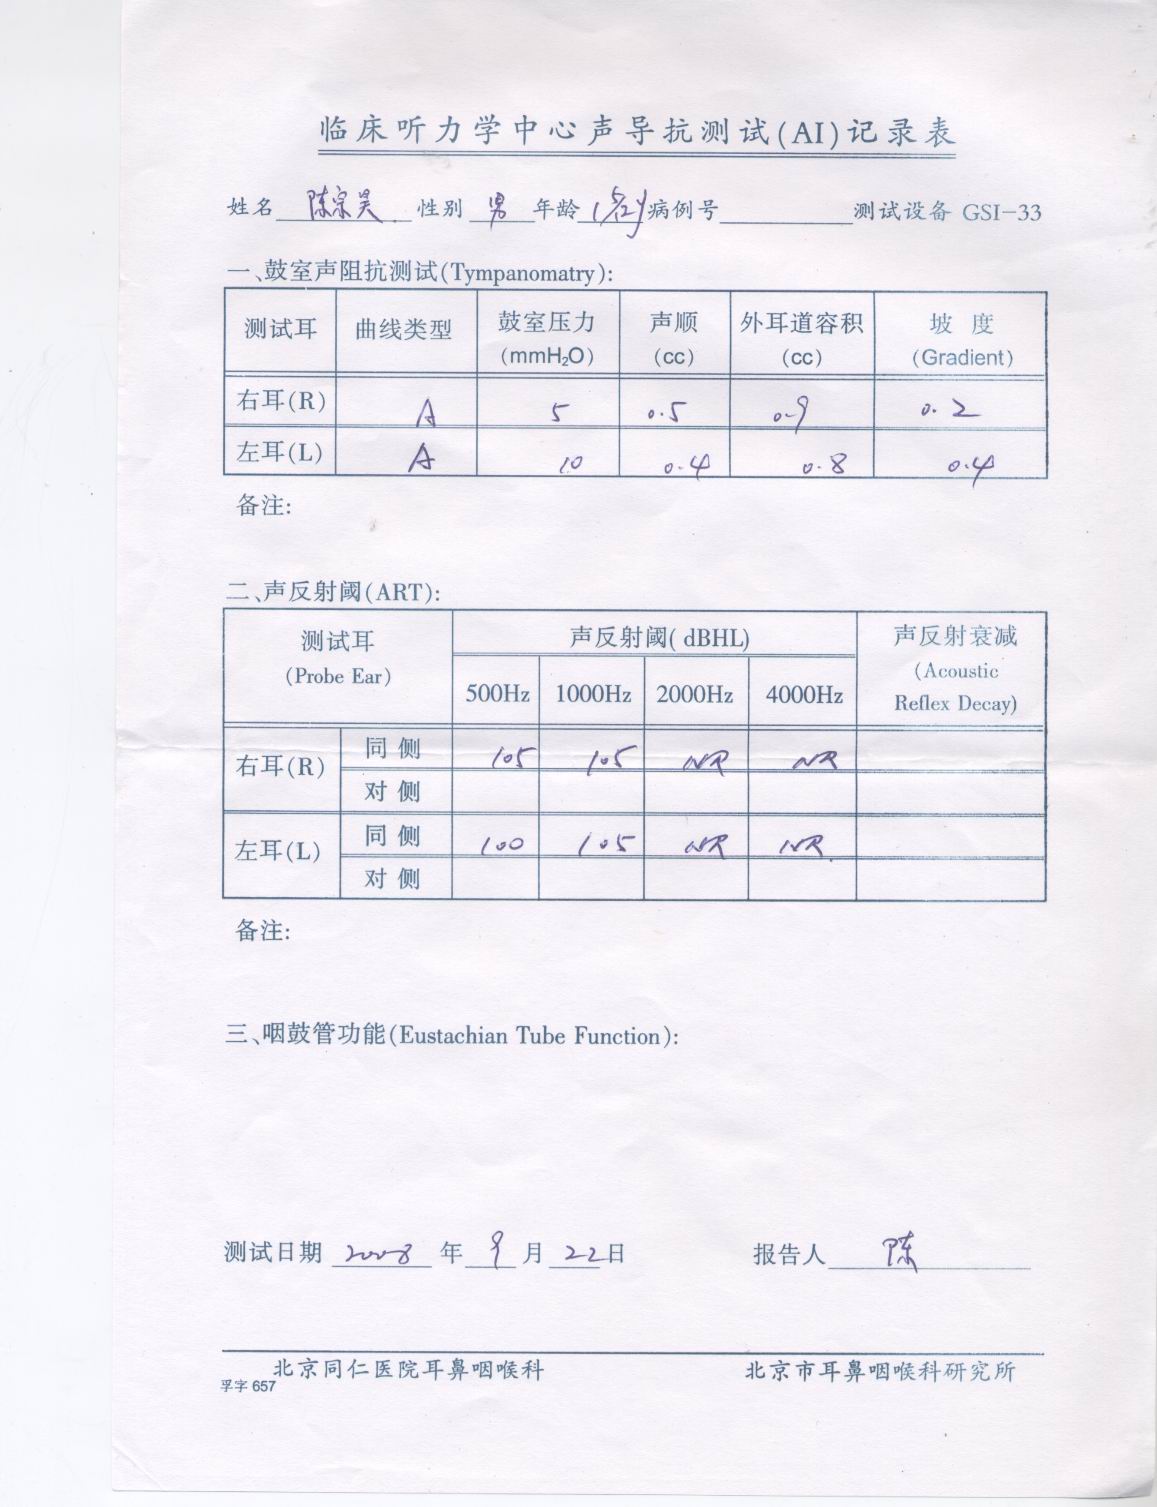 临床听力学中心声导抗测试(AI)记录表
姓名 陈宗昊 性别 男 年龄 病例号 测试设备 GSI-33
一、鼓室声阻抗测试(Tympanomatry):
测试耳 曲线类型 鼓室压力 (mmH₂O) 声顺 (cc) 外耳道容积 (cc) 坡度 (Gradient)
右耳(R) A 5 0.5 0.9 0.2
左耳(L) A 10 0.4 0.8 0.4
备注:
二、声反射阈(ART):
测试耳 (Probe Ear) 声反射阈( dBHL) 声反射衰减 (Acoustic Reflex Decay)
500Hz 1000Hz 2000Hz 4000Hz
右耳(R) 同侧 105 105 NR NR
对侧
左耳(L) 同侧 100 105 NR NR
对侧
备注:
三、咽鼓管功能(Eustachian Tube Function):
测试日期 2008 年 9 月 22 日 报告人 陈
北京同仁医院耳鼻咽喉科 北京市耳鼻咽喉科研究所
孚字 657